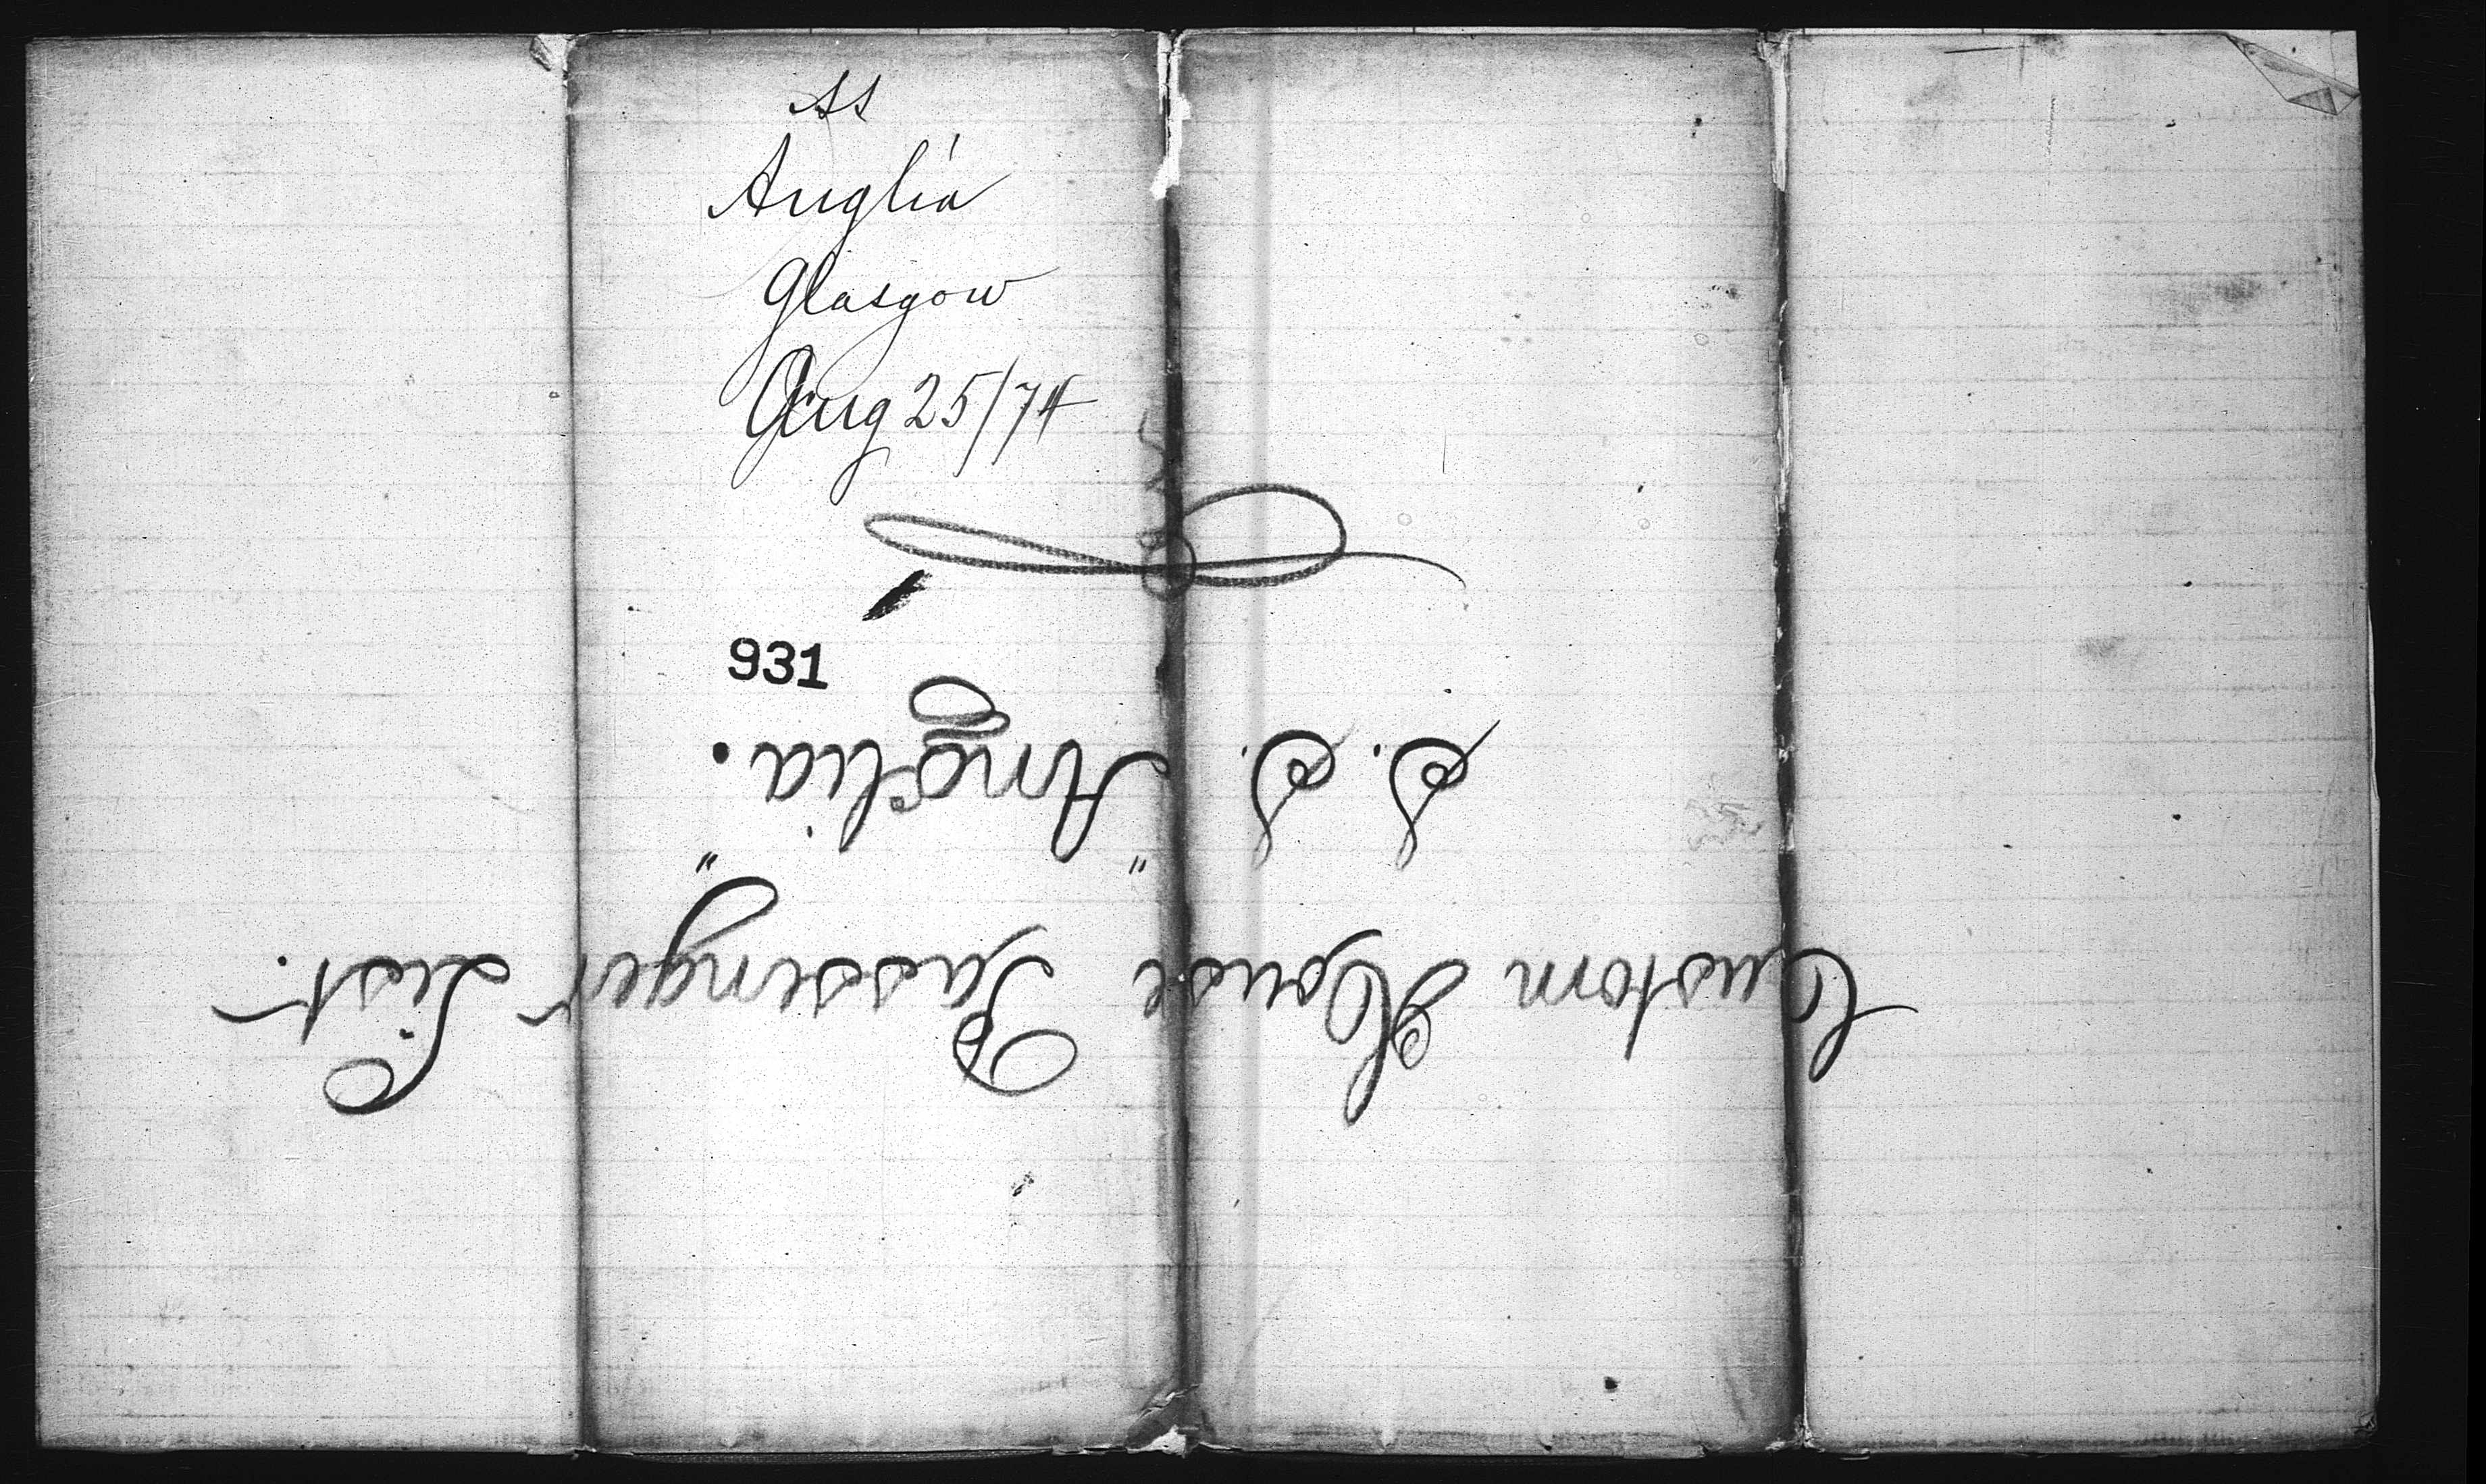 SS
Anglia
Glasgow
Aug 25/74
931
Custom House Passenger List.
S. S. "Anglia."